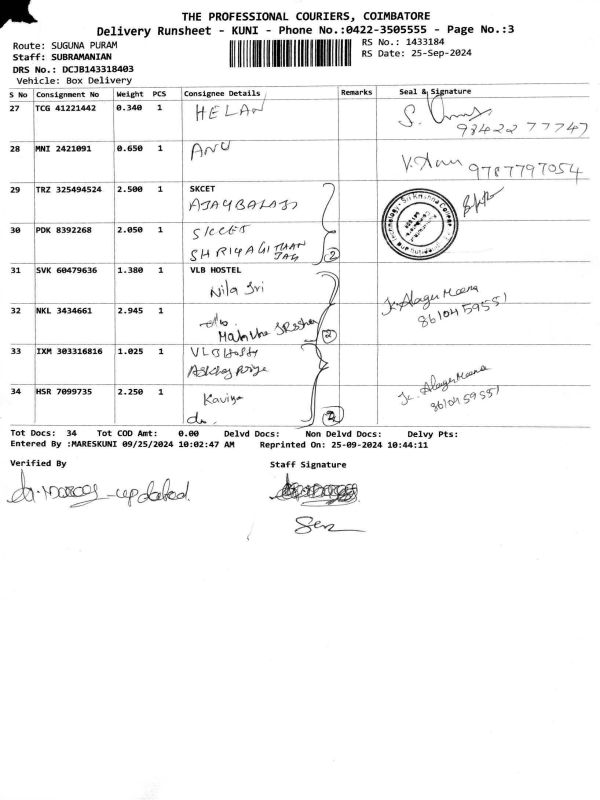 THE PROFESSIONAL COURIERS, COIMBATORE
Delivery Runsheet - KUNI - Phone No.:0422-3505555 - Page No.:3
Route: SUGUNA PURAM
RS No.: 1433184
Staff: SUBRAMANIAN
RS Date: 25-Sep-2024
DRS No.: DCJB143318403
Vehicle: Box Delivery
S No Consignment No Weight PCS Consignee Details Remarks Seal & Signature
27 TCG 41221442 0.340 1 HELAN
S.
93422 77747
28 MNI 2421091 0.650 1 ANU
9787797054
29 TRZ 325494524 2.500 1 SKCET
AJAYBALAJI
30 PDK 8392268 2.050 1 SKCET
SHRIYAGITHAN
2
31 SVK 60479636 1.380 1 VLB HOSTEL
Nila Sri
K. Alager Meena
8610459551
32 NKL 3434661 2.945 1
2
33 IXM 303316816 1.025 1 VLB Hostel
34 HSR 7099735 2.250 1 Kaviya
do.
2
K. Alager Meena
8610459551
Tot Docs: 34 Tot COD Amt: 0.00 Delvd Docs: Non Delvd Docs: Delvy Pts:
Entered By :MARESKUNI 09/25/2024 10:02:47 AM Reprinted On: 25-09-2024 10:44:11
Verified By Staff Signature
updated.